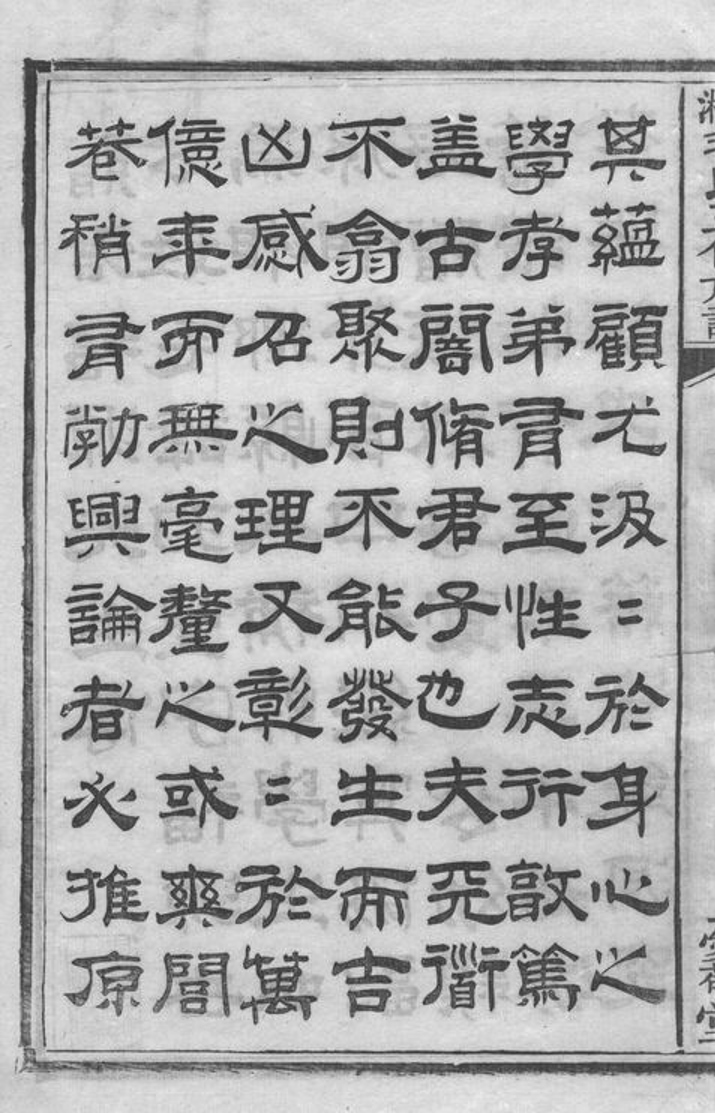 其蘊顧尤汲〻於身心之
學孝弟有至性志行敦篤
盖古闇脩君子也夫天衟
不翕聚則不能發生而吉
凶感召之理又彰〻於萬
億年而無毫釐之或爽閭
巷稍有勃興論者必推原